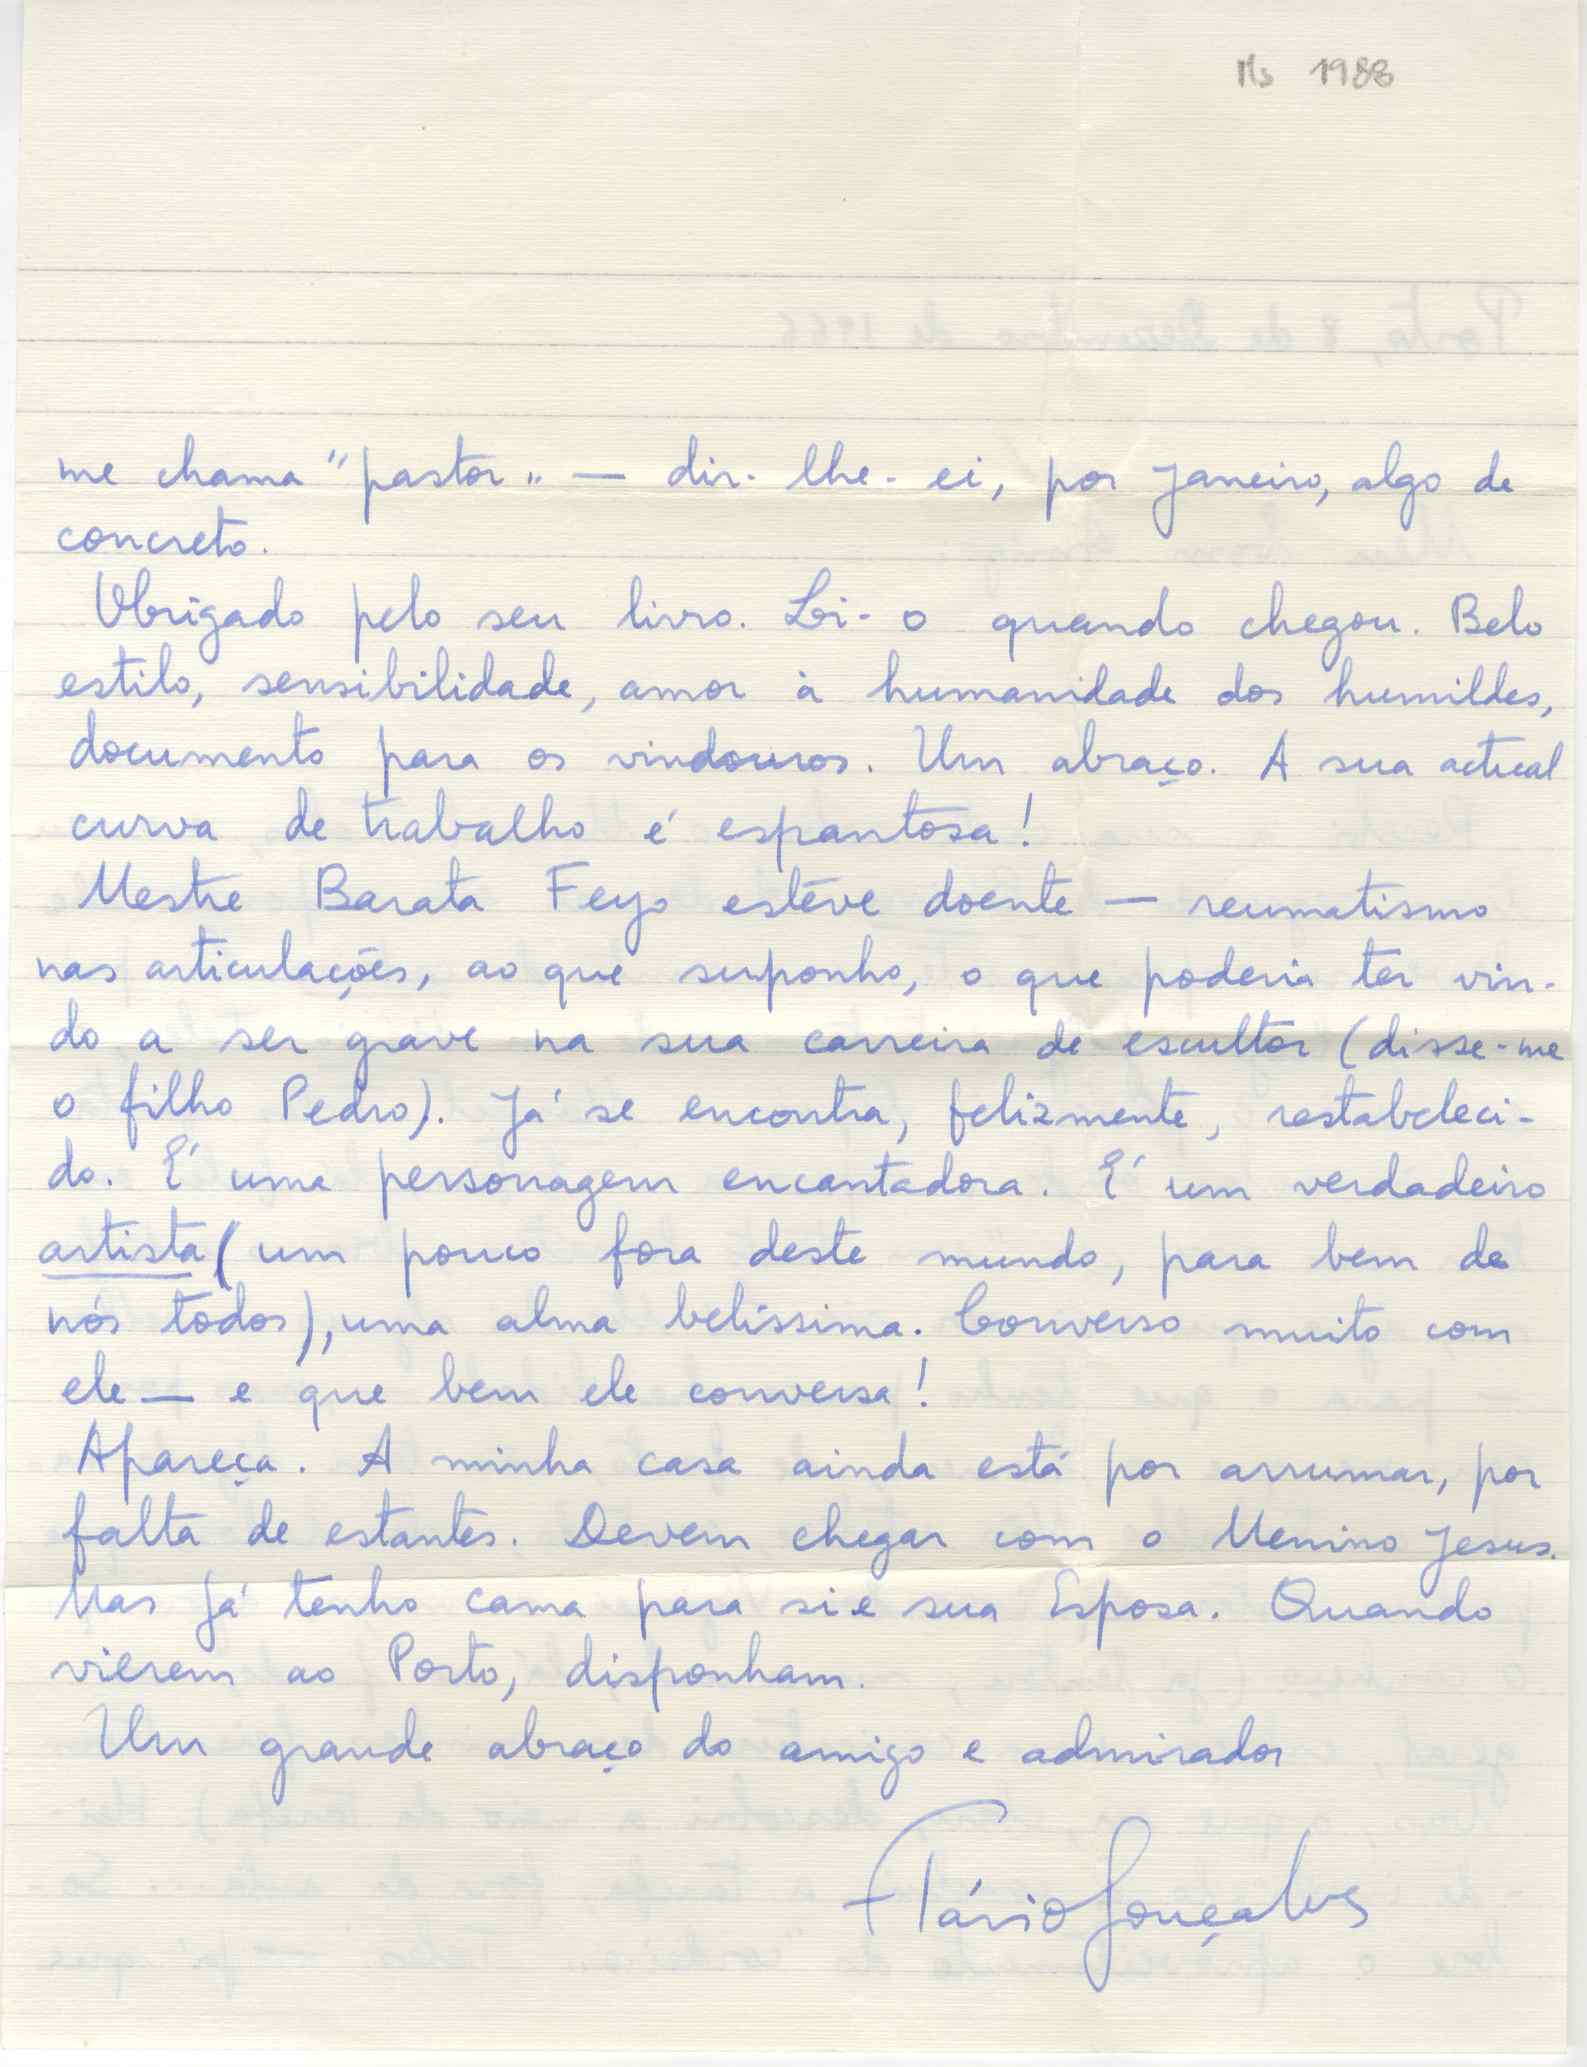 Ms 1988
me chama "pastor" — dir-lhe-ei, por Janeiro, algo de
concreto.
Obrigado pelo seu livro. Li-o quando chegou. Belo
estilo, sensibilidade, amor à humanidade dos humildes,
documento para os vindouros. Um abraço. A sua actual
curva de trabalho é espantosa!
Mestre Barata Feyo estêve doente — reumatismo
nas articulações, ao que suponho, o que poderia ter vin-
do a ser grave na sua carreira de escultor (disse-me
o filho Pedro). Já se encontra, felizmente, restabeleci-
do. É uma personagem encantadora. É um verdadeiro
artista (um pouco fora deste mundo, para bem de
nós todos), uma alma belíssima. Converso muito com
ele — e que bem ele conversa!
Apareça. A minha casa ainda está por arrumar, por
falta de estantes. Devem chegar com o Menino Jesus.
Mas já tenho cama para si e sua Esposa. Quando
vierem ao Porto, disponham.
Um grande abraço do amigo e admirador
Flávio Gonçalves